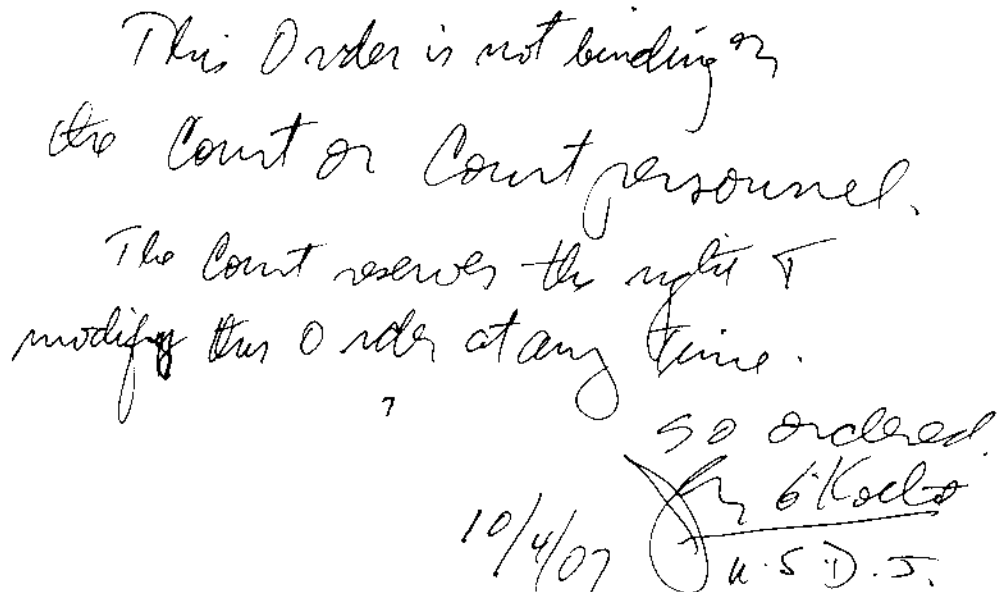 This Order is not binding on
the Court or Court personnel.
The Court reserves the right to
modify this Order at any time.
So ordered
10/4/07
U.S.D.J.